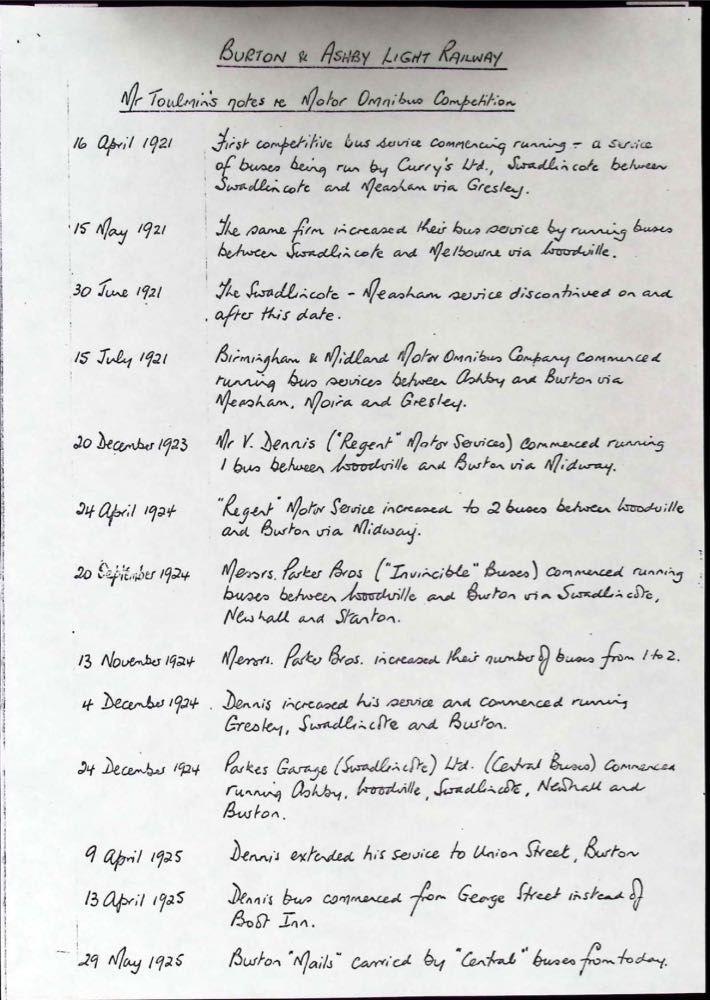 BURTON & ASHBY LIGHT RAILWAY
Mr Toulmin's notes re Motor Omnibus Competition
16 April 1921 First competitive bus service commencing running - a service
of buses being run by Curry's Ltd., Swadlincote between
Swadlincote and Measham via Gresley.
15 May 1921 The same firm increased their bus service by running buses
between Swadlincote and Melbourne via Woodville.
30 June 1921 The Swadlincote - Measham service discontinued on and
after this date.
15 July 1921 Birmingham & Midland Motor Omnibus Company commenced
running bus services between Ashby and Burton via
Measham, Moira and Gresley.
20 December 1923 Mr V. Dennis ("Regent" Motor Services) commenced running
1 bus between Woodville and Burton via Midway.
24 April 1924 "Regent" Motor Service increased to 2 buses between Woodville
and Burton via Midway.
20 September 1924 Messrs. Parker Bros ("Invincible" Buses) commenced running
buses between Woodville and Burton via Swadlincote,
Newhall and Stanton.
13 November 1924 Messrs. Parker Bros. increased their number of buses from 1 to 2.
4 December 1924 Dennis increased his service and commenced running
Gresley, Swadlincote and Burton.
24 December 1924 Parkes Garage (Swadlincote) Ltd. (Central Buses) commenced
running Ashby, Woodville, Swadlincote, Newhall and
Burton.
9 April 1925 Dennis extended his service to Union Street, Burton
13 April 1925 Dennis bus commenced from George Street instead of
Boot Inn.
29 May 1925 Burton "Mails" carried by "Central" buses from today.